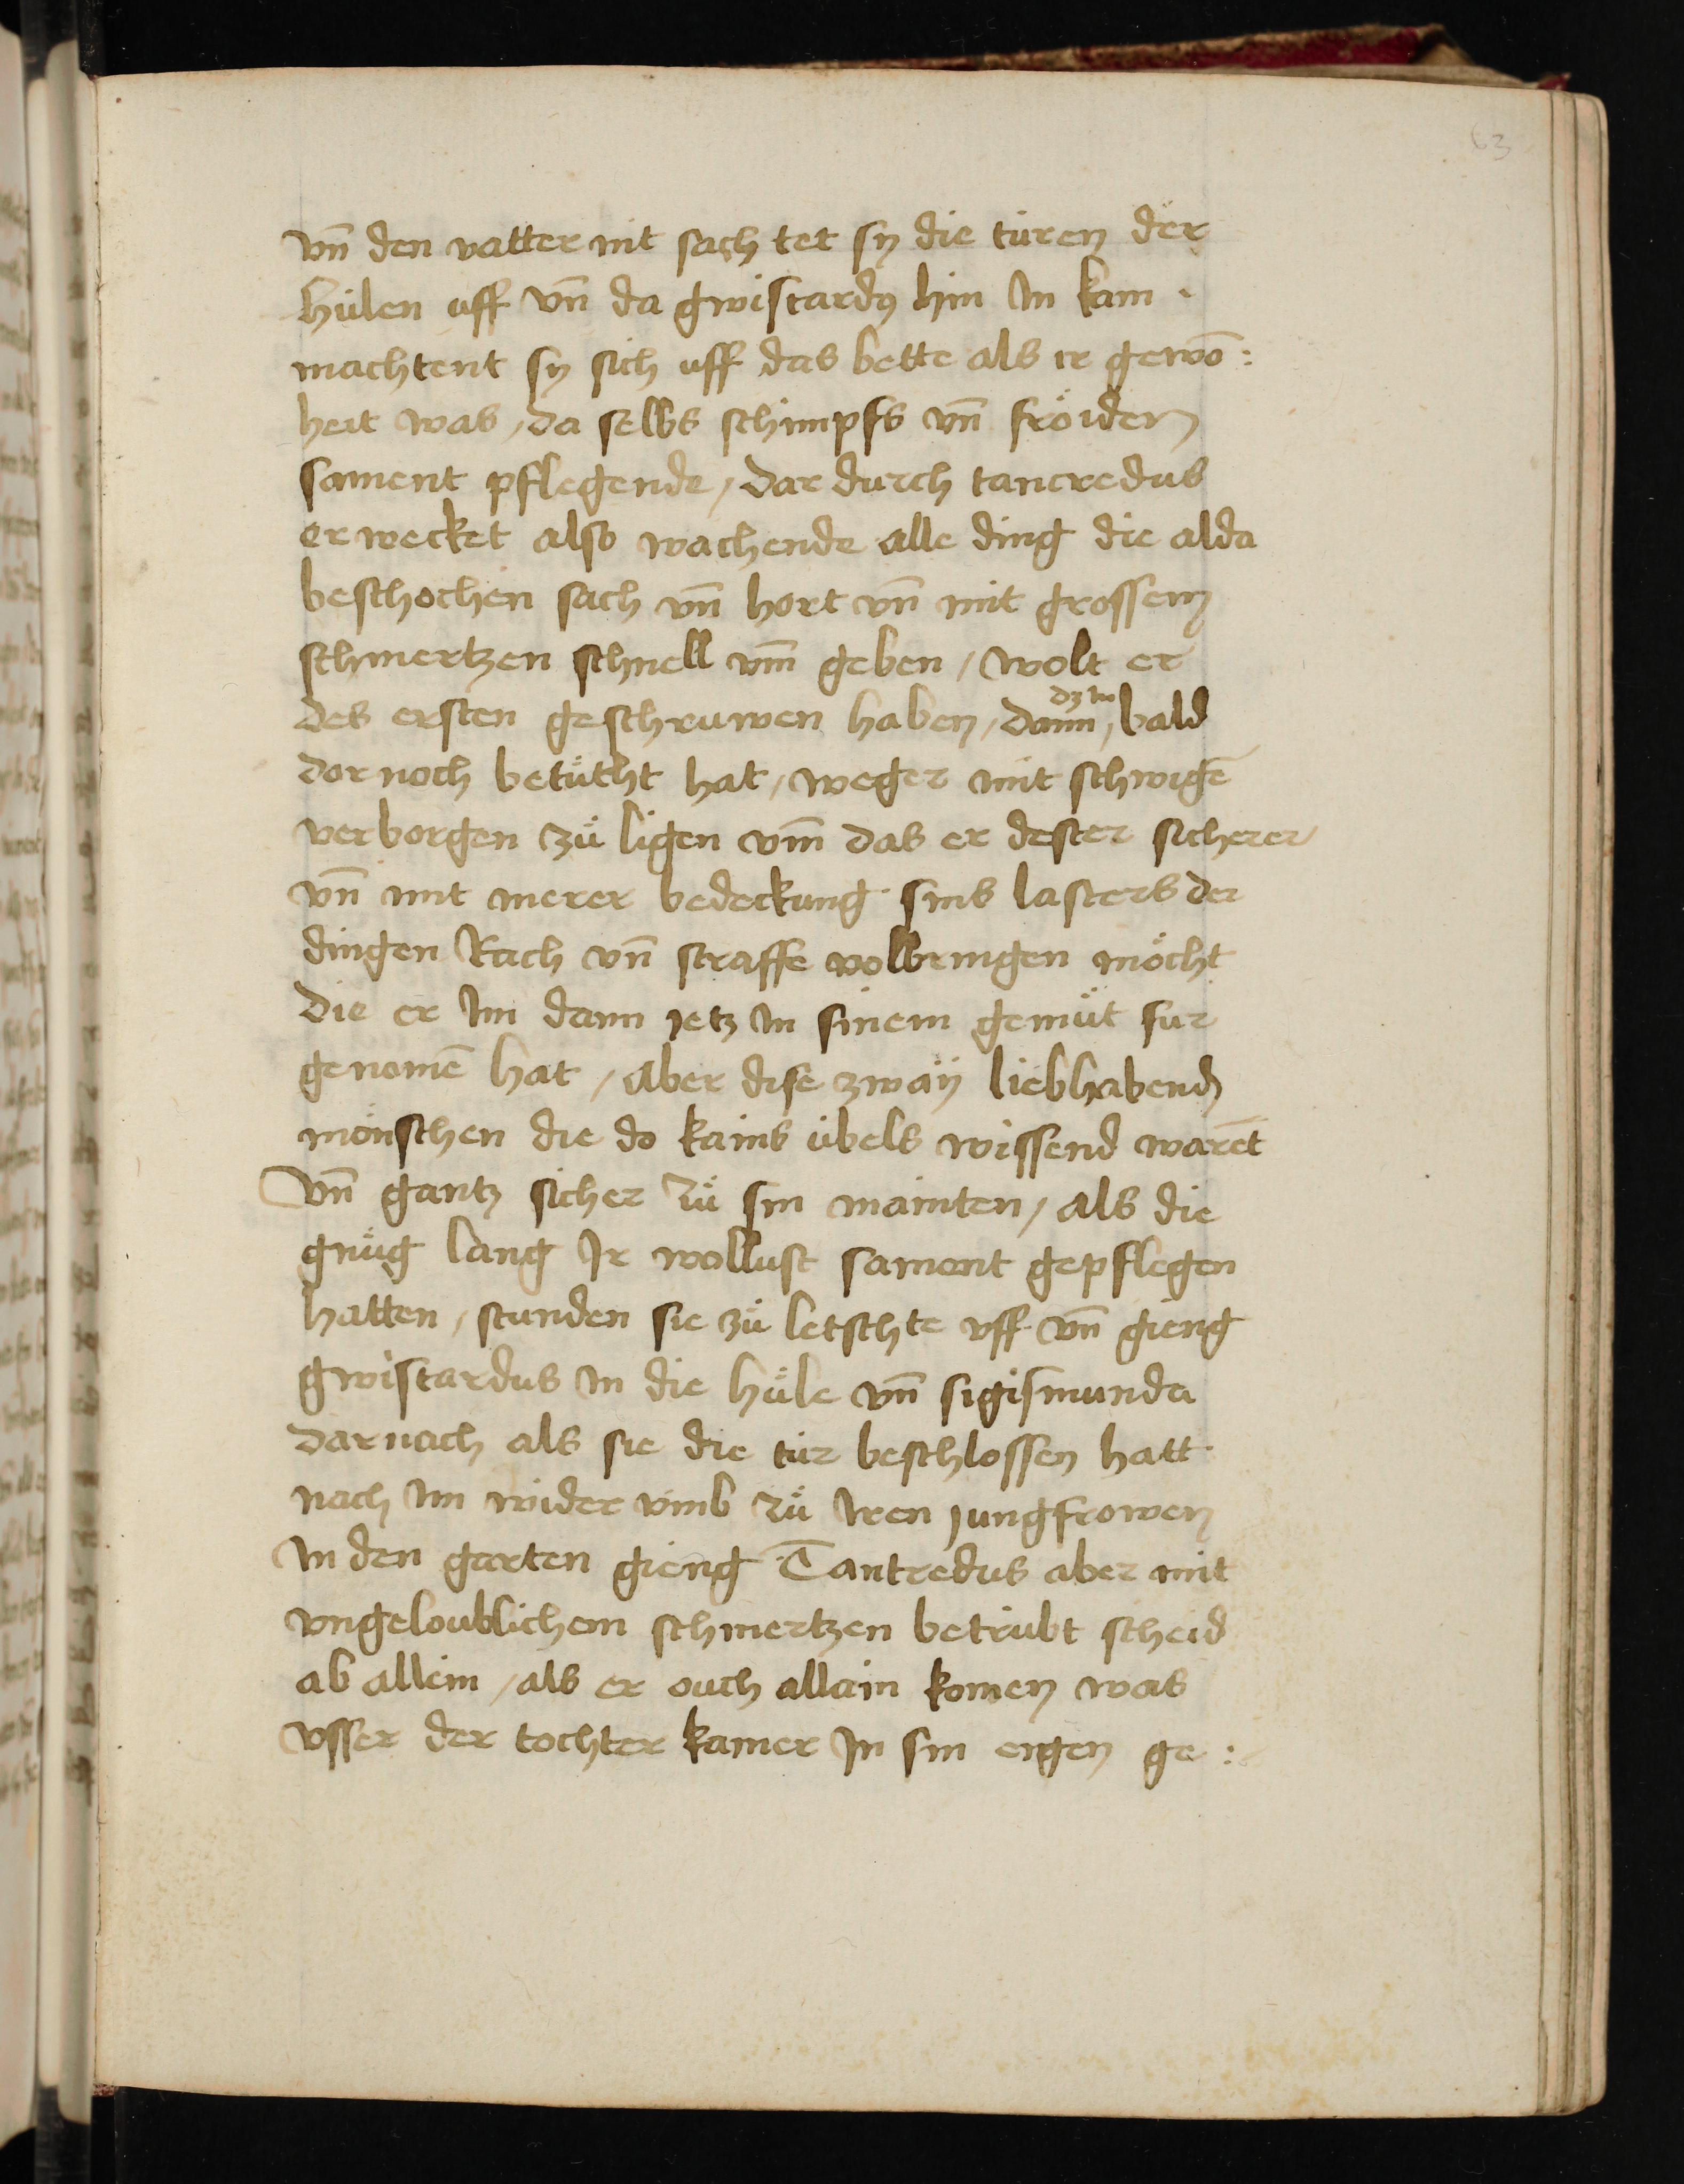 63
vn̄ den vatter nit sach tet sy die türen der
hülen uff vn̄ da gwistardꝰ hin In kam .
machtent sy sich uff das bette als ir gewō :
heit was / da selbs schimpfs vn̄ fröiden
sament pflegende / dar durch tancredus
er wecket also wachende alle ding die alda
beschochen sach vn̄ hort vn̄ mit grossem
schmertzen schnell vm̄ geben / wolt er
des ersten geschruwen haben / dann dz Im bald
dor noch betücht hat / weger mit schwigē
verborgen zů ligen vm̄ das er dester sicherer
vn̄ mit merer bedeckung sins lasters der
dingen Rach vn̄ straffe volbringen möcht
die er Im dann ietz In sinem gemüt für
genomē hat / Aber dise zway liebhabend
mönschen die do kains übels wissend warēt
vn̄ gantz sicher zů sin mainten / als die
gnůg lang Ir wollust sament gepflegen
hatten / stunden sie zů letschte vff vn̄ gieng
gwistardus In die hüle vn̄ sigismunda
darnach als sie die tür beschlossen hatt
nach Im wider vmb zů Iren Jungfrowen
In den garten gieng Tantredus aber mit
vngeloublichem schmertzen betrübt scheid
ab allein / als er ouch allain komen was
vsser der tochter kamer In sin eigen ge :